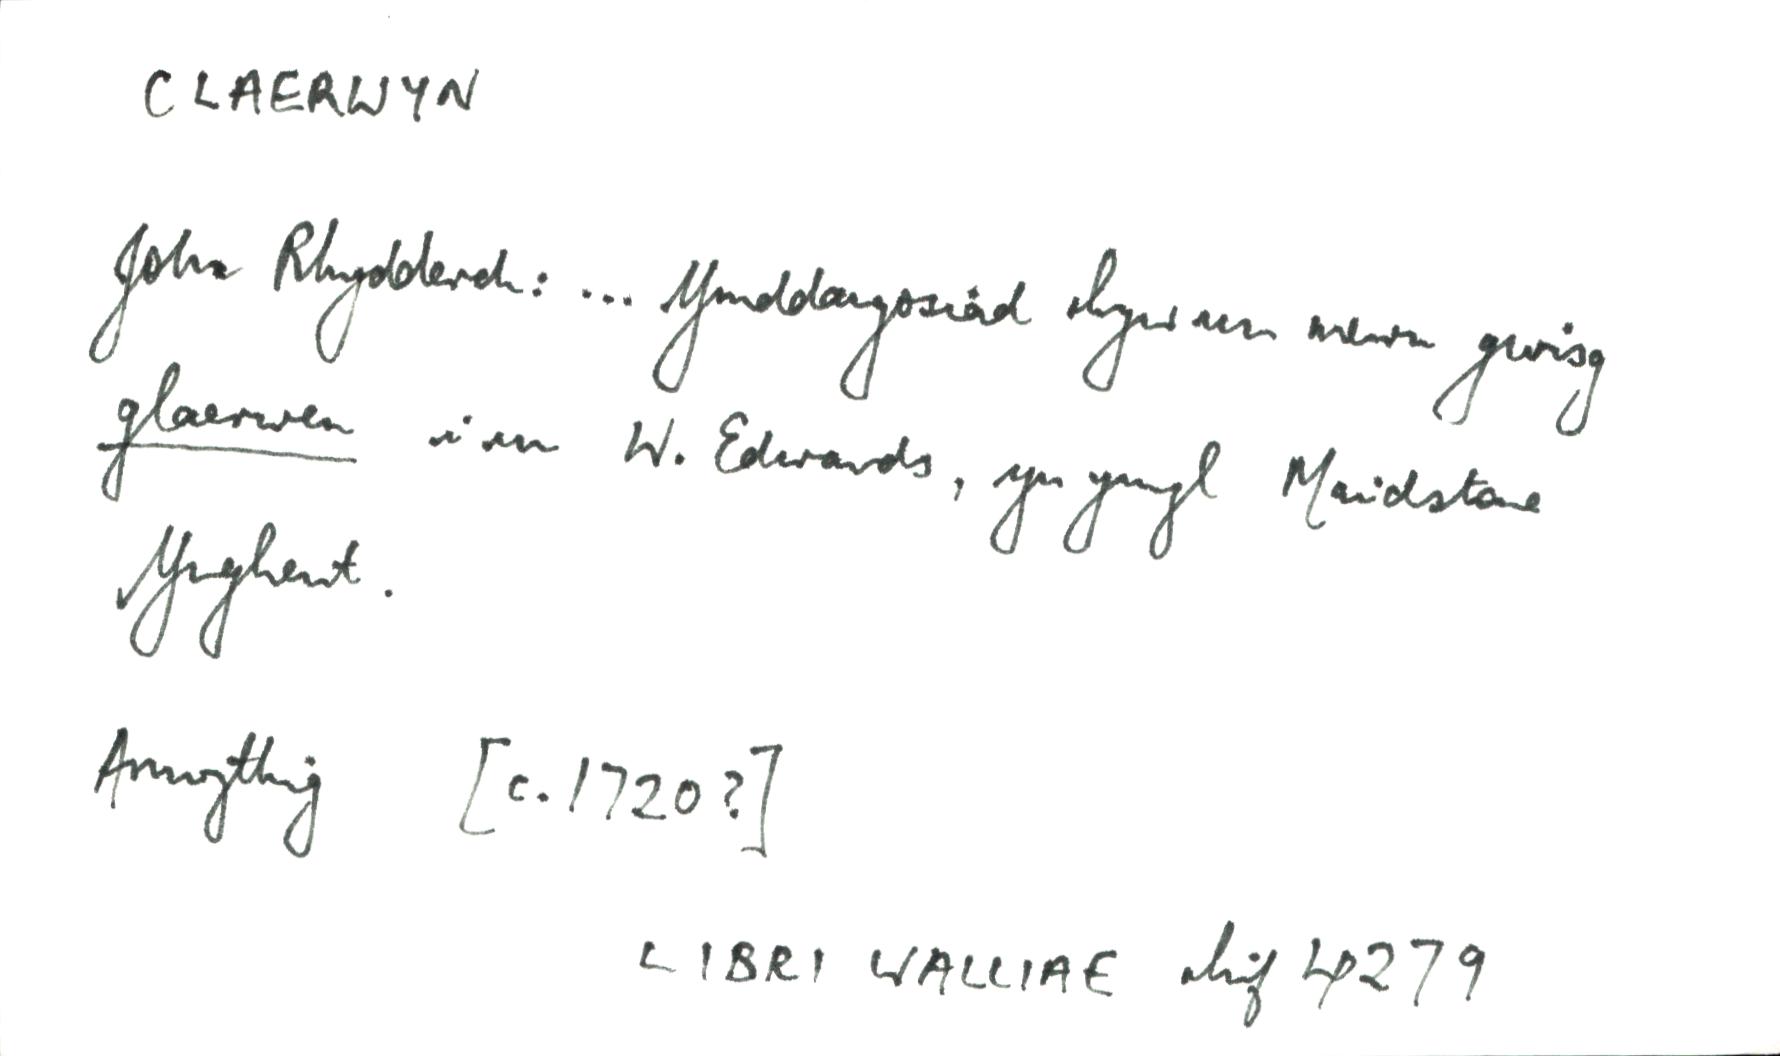 CLAERWYN
John Rhydderch: ... Ymddangosiad rhyw un mewn gwisg
glaerwen i un W. Edwards, yn ymyl Maidstone
Ynghent.
Amwythig [c. 1720?]
LIBRI WALLIAE rhif 4279